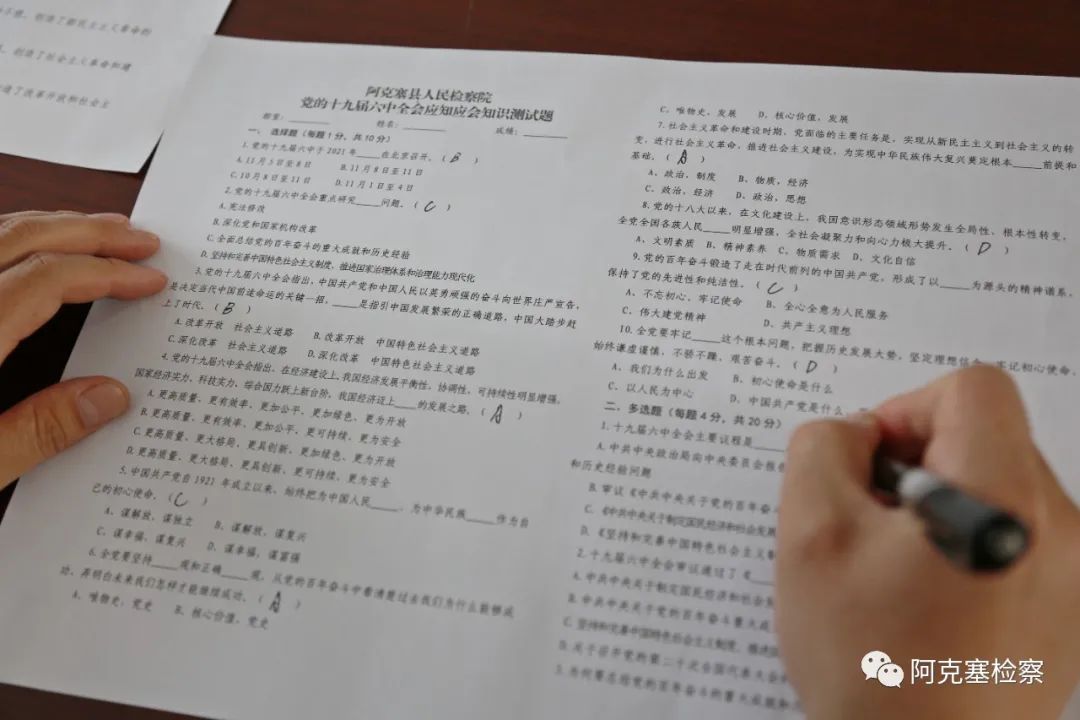 创造了新民主主义革命的
创造了社会主义革命和建
造了改革开放和社会主
阿克塞县人民检察院
党的十九届六中全会应知应会知识测试题
部室：________ 姓名：________ 成绩：________
一、选择题（每题1分，共10分）
1.党的十九届六中于2021年____在北京召开。（ B ）
A.11月5日至8日 B.11月8日至11日
C.10月8日至11日 D.11月1日至4日
2.党的十九届六中全会重点研究____问题。（ C ）
A.宪法修改
B.深化党和国家机构改革
C.全面总结党的百年奋斗的重大成就和历史经验
D.坚持和完善中国特色社会主义制度、推进国家治理体系和治理能力现代化
3.党的十九届六中全会指出，中国共产党和中国人民以英勇顽强的奋斗向世界庄严宣告，
____是决定当代中国前途命运的关键一招，____是指引中国发展繁荣的正确道路，中国大踏步赶
上了时代。（ B ）
A.改革开放 社会主义道路 B.改革开放 中国特色社会主义道路
C.深化改革 社会主义道路 D.深化改革 中国特色社会主义道路
4.党的十九届六中全会指出，在经济建设上，我国经济发展平衡性、协调性、可持续性明显增强，
国家经济实力、科技实力、综合国力跃上新台阶，我国经济迈上____的发展之路。（ A ）
A.更高质量、更有效率、更加公平、更加绿色、更为开放
B.更高质量、更有效率、更加公平、更可持续、更为安全
C.更高质量、更大格局、更具创新、更加绿色、更为开放
D.更高质量、更大格局、更具创新、更可持续、更为安全
5.中国共产党自1921 年成立以来，始终把为中国人民____、为中华民族____作为自
己的初心使命。（ C ）
A、谋解放，谋独立 B、谋解放，谋复兴
C、谋幸福，谋复兴 D、谋幸福，谋富强
6.全党要坚持____观和正确____观，从党的百年奋斗中看清楚过去我们为什么能够成
功、弄明白未来我们怎样才能继续成功。（ A ）
A、唯物史，党史 B、核心价值，党史
C、唯物史，发展 D、核心价值，发展
7.社会主义革命和建设时期，党面临的主要任务是，实现从新民主主义到社会主义的转
变，进行社会主义革命，推进社会主义建设，为实现中华民族伟大复兴奠定根本____前提和
基础。（ A ）
A、政治，制度 B、物质，经济
C、政治，经济 D、政治，思想
8.党的十八大以来，在文化建设上，我国意识形态领域形势发生全局性、根本性转变，
全党全国各族人民____明显增强，全社会凝聚力和向心力极大提升。（ D ）
A、文明素质 B、精神素养 C、物质需求 D、文化自信
9.党的百年奋斗锻造了走在时代前列的中国共产党，形成了以____为源头的精神谱系，
保持了党的先进性和纯洁性。（ C ）
A、不忘初心、牢记使命 B、全心全意为人民服务
C、伟大建党精神 D、共产主义理想
10.全党要牢记____这个根本问题，把握历史发展大势，坚定理想信念，牢记初心使命，
始终谦虚谨慎，不骄不躁，艰苦奋斗。（ D ）
A、我们为什么出发 B、初心使命是什么
C、以人民为中心 D、中国共产党是什么、
二、多选题（每题4分，共20分）
1.十九届六中全会主要议程是____
A.中共中央政治局向中央委员会报告
和历史经验问题
B.审议《中共中央关于党的百年奋
C.《中共中央关于制定国民经济和社会发展
D.《坚持和完善中国特色社会主义制
2.十九届六中全会审议通过了《____
A.中共中央关于制定国民经济和社会发
B.中共中央关于党的百年奋斗重大成
C.坚持和完善中国特色社会主义制度、推进国
D.关于召开党的第二十次全国代表大会
3.为何要总结党的百年奋斗的重大成就和
阿克塞检察